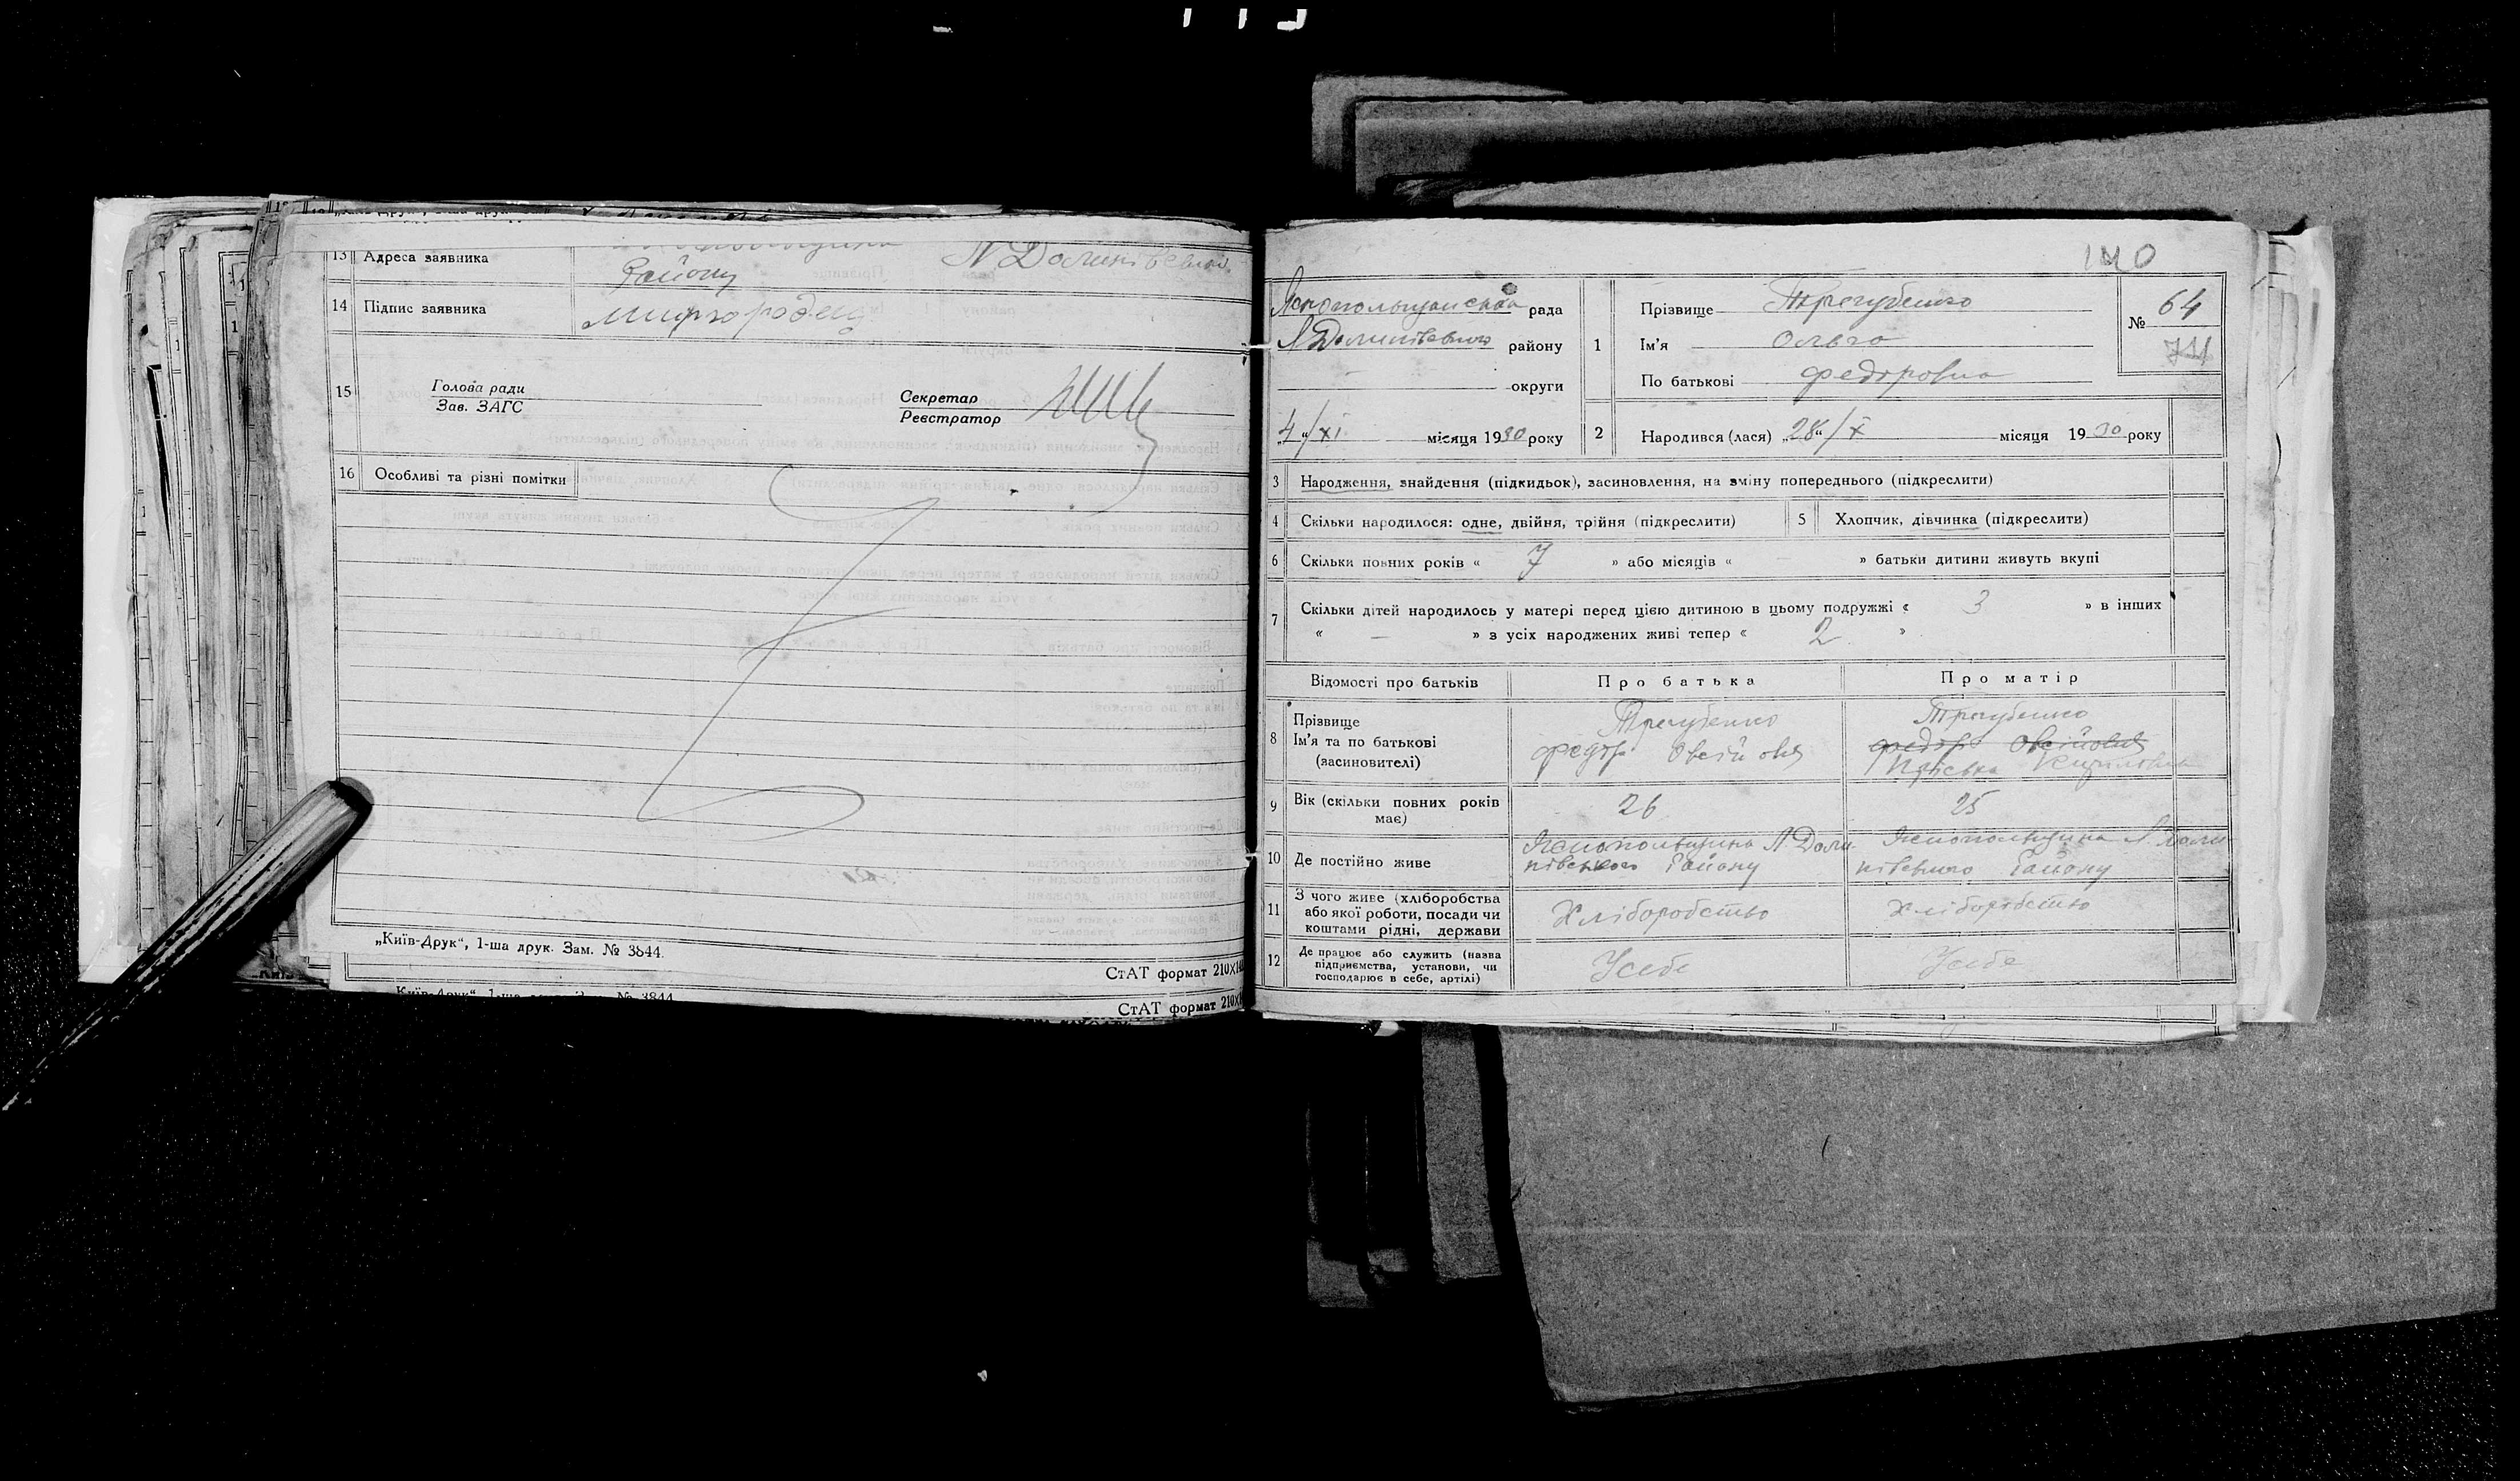 13 Адреса заявника
Району
14 Підпис заявника Миргородец
15 Голова ради
Зав. ЗАГС
Секретар
Реєстратор
16 Особливі та різні помітки
„Київ-Друк“, 1-ша друк. Зам. № 3844.
СтАТ формат 210X1
СтАТ формат 210X
140
рада
району
округи
„4“/XI місяця 1930 року
1 Прізвище Трегубенко
Ім'я Ольга
По батькові Федоровна
№ 64
2 Народився (лася) „28“/X місяця 1930 року
3 Народження, знайдення (підкидьок), засиновлення, на зміну попереднього (підкреслити)
4 Скільки народилося: одне, двійня, трійня (підкреслити) 5 Хлопчик, дівчинка (підкреслити)
6 Скільки повних років « 7 » або місяців « — » батьки дитини живуть вкупі
7 Скільки дітей народилось у матері перед цією дитиною в цьому подружжі « 3 » в інших
« — » з усіх народжених живі тепер « 2 »
Відомості про батьків Про батька Про матір
8 Прізвище
Ім'я та по батькові
(засиновителі)
Трегубенко
Федор Овсійовя
Трегубенко
Федор Овсійовя
9 Вік (скільки повних років
має)
26 25
10 Де постійно живе
Району
Району
11 З чого живе (хліборобства
або якої роботи, посади чи
коштами рідні, держави
Хліборобство Хліборобство
12 Де працює або служить (назва
підприємства, установи, чи
господарює в себе, артілі)
Усебе Усебе